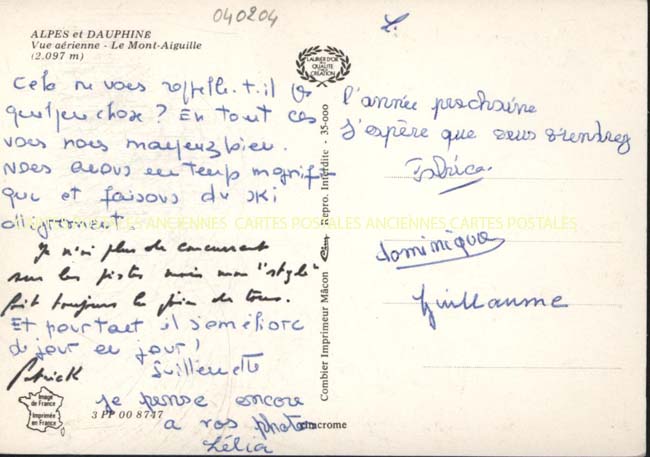 040204
ALPES et DAUPHINÉ
Vue aérienne - Le Mont-Aiguille
(2.097 m)
Cela ne vous rappelle-t-il
quelque chose ? En tout cas
vous nous manquez bien.
nous avons un temps magnifi-
que et faisons du ski
allègrement.
Je n'ai plus de concurrent
sur les pistes mais mon "style"
fait toujours la joie de tous.
Et pourtant il s'améliore
de jour en jour !
Guillemette
Patrick
je pense encore
a vos photos
Lélia
Image
de France
Imprimée
en France
3 PP 00 8747
LAURIER D'OR
QUALITÉ
CRÉATION
Combier Imprimeur Mâcon Cim Repro. Interdite - 35-000
cimacrome
l'année prochaine
J'espère que vous viendrez
Dominique
Guillaume
ANCIENNES CARTES POSTALES ANCIENNES CARTES POSTALES